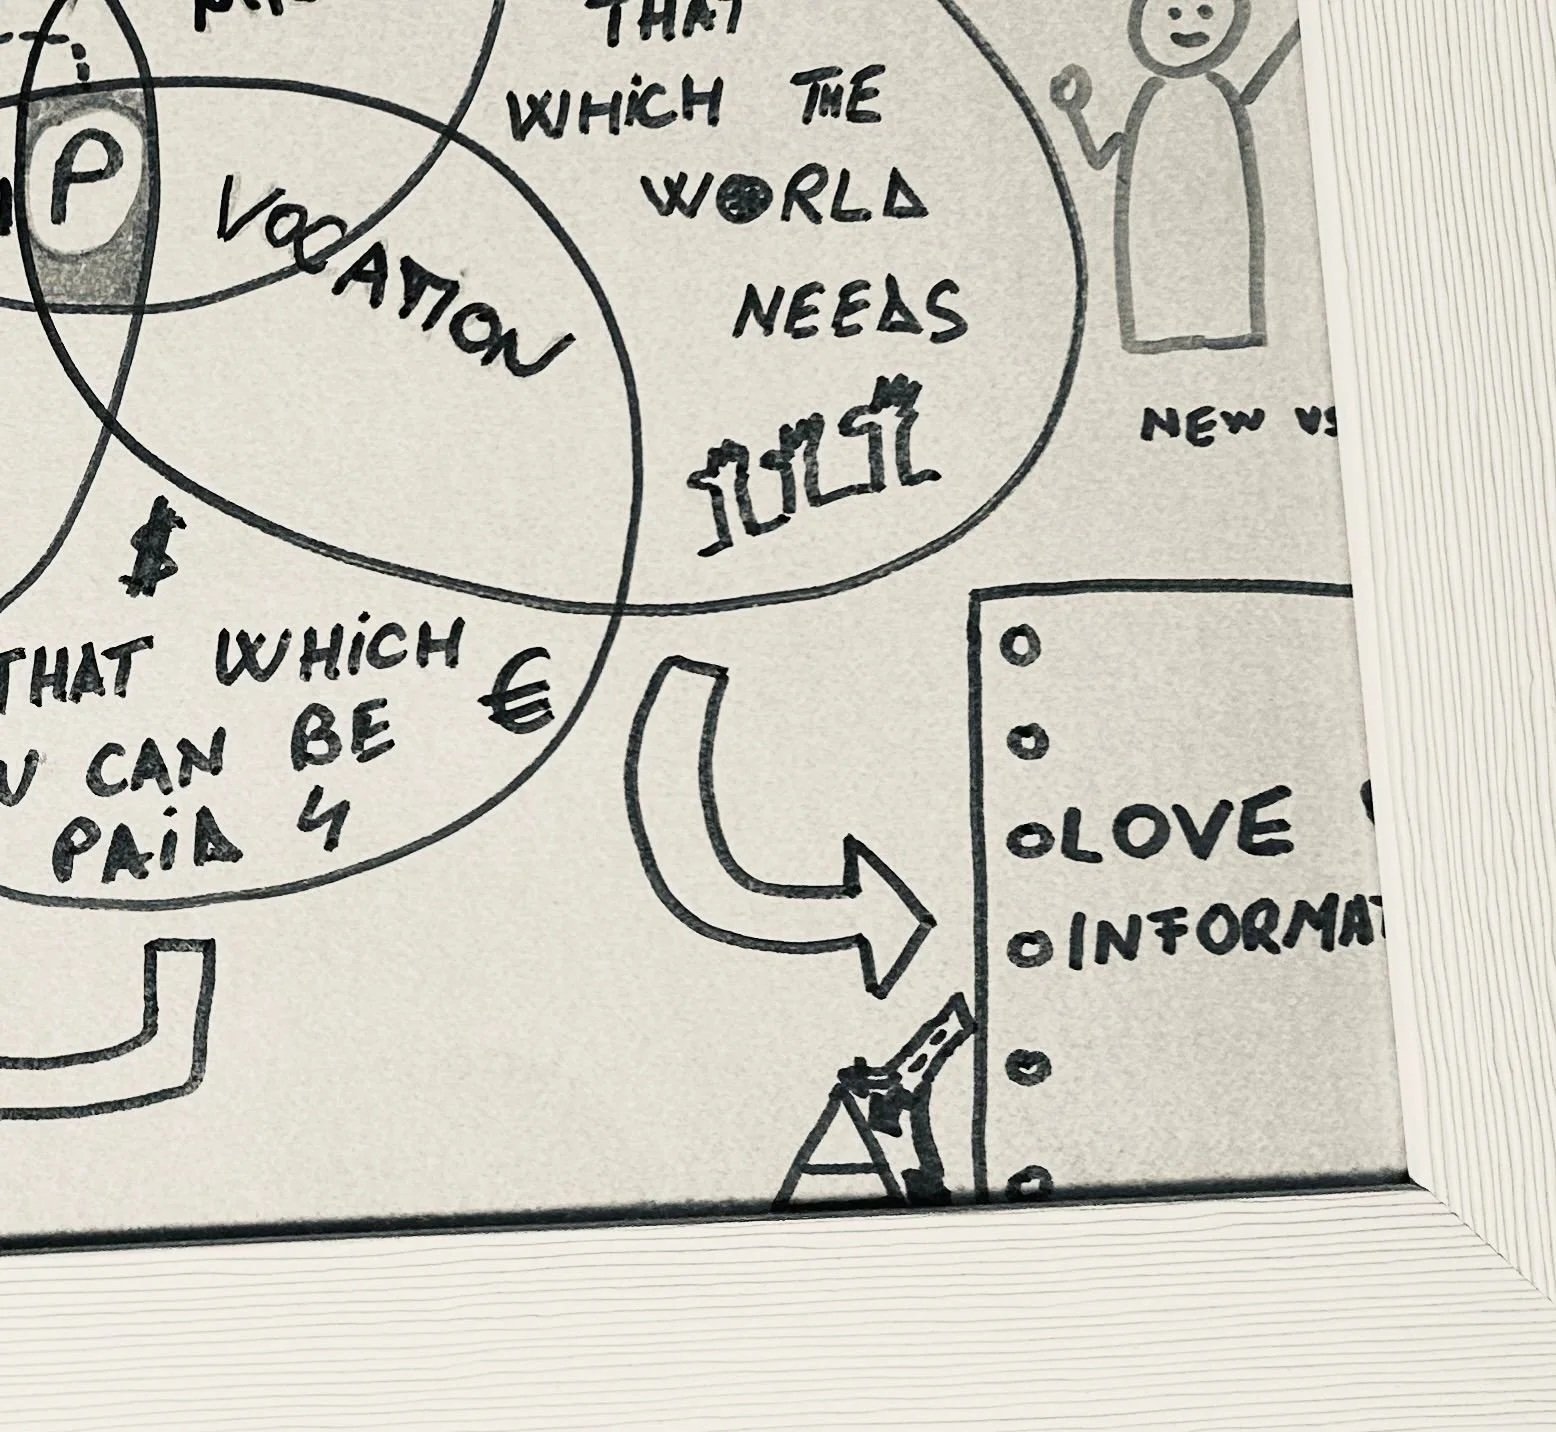 THAT
WHiCH THE
WORLD
NEEDS
P
VOCATION
NEW
$
THAT WHiCH
CAN BE €
PAiD 4
LOVE